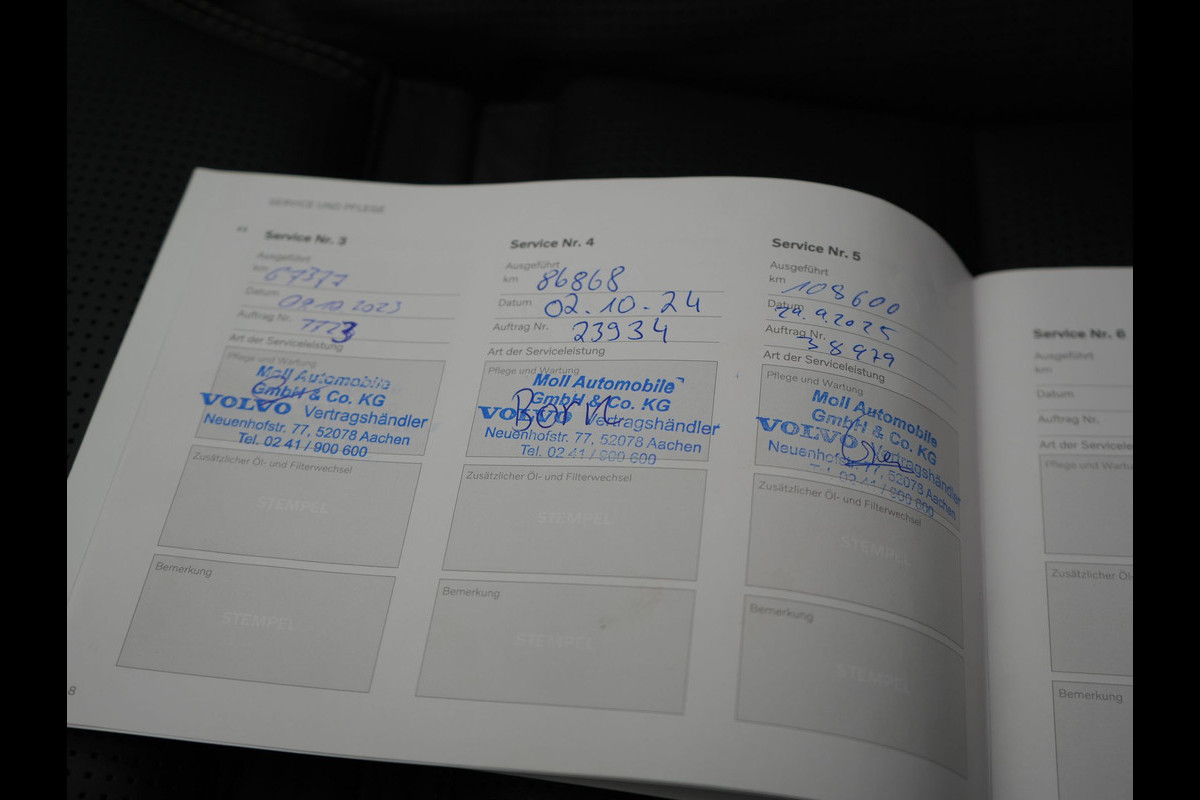 SERVICE UND PFLEGE
Service Nr. 3
Ausgeführt
km 67377
Datum 09.10.2023
Auftrag Nr. 7723
Art der Serviceleistung
Pflege und Wartung
Moll Automobile
GmbH & Co. KG
VOLVO Vertragshändler
Neuenhofstr. 77, 52078 Aachen
Tel. 02 41 / 900 600
Zusätzlicher Öl- und Filterwechsel
STEMPEL
Bemerkung
STEMPEL
8
Service Nr. 4
Ausgeführt
km 86868
Datum 02.10.24
Auftrag Nr. 23934
Art der Serviceleistung
Pflege und Wartung
Moll Automobile
GmbH & Co. KG
VOLVO Vertragshändler
Born
Neuenhofstr. 77, 52078 Aachen
Tel. 02 41 / 900 600
Zusätzlicher Öl- und Filterwechsel
STEMPEL
Bemerkung
STEMPEL
Service Nr. 5
Ausgeführt
km 108600
Datum 29.9.2025
Auftrag Nr. 38979
Art der Serviceleistung
Pflege und Wartung
Moll Automobile
GmbH & Co. KG
VOLVO Vertragshändler
Neuenhofstr. 77, 52078 Aachen
Tel. 02 41 / 900 600
Zusätzlicher Öl- und Filterwechsel
STEMPEL
Bemerkung
STEMPEL
Service Nr. 6
Ausgeführt
km
Datum
Auftrag Nr.
Art der Servicele
Pflege und Wartu
Zusätzlicher Öl-
Bemerkung